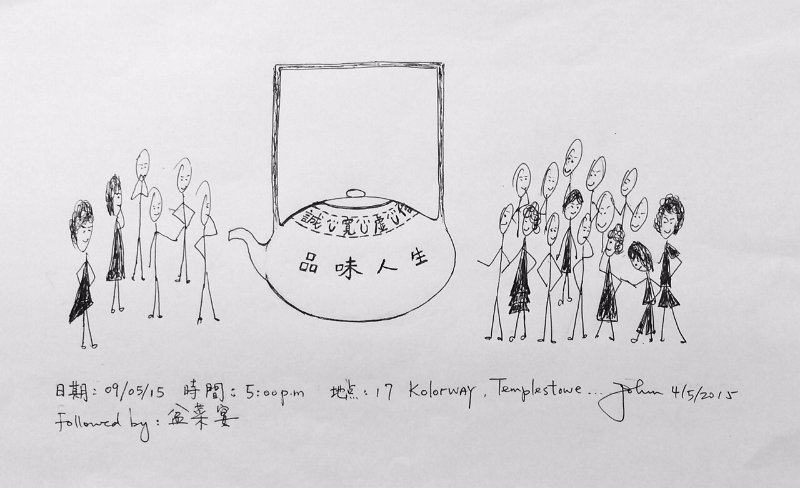 誠心寬心虛心信
品味人生
日期：09/05/15 時間：5:00p.m 地点：17 Kolorway, Templestowe... John 4/5/2015
Followed by: 盆菜宴